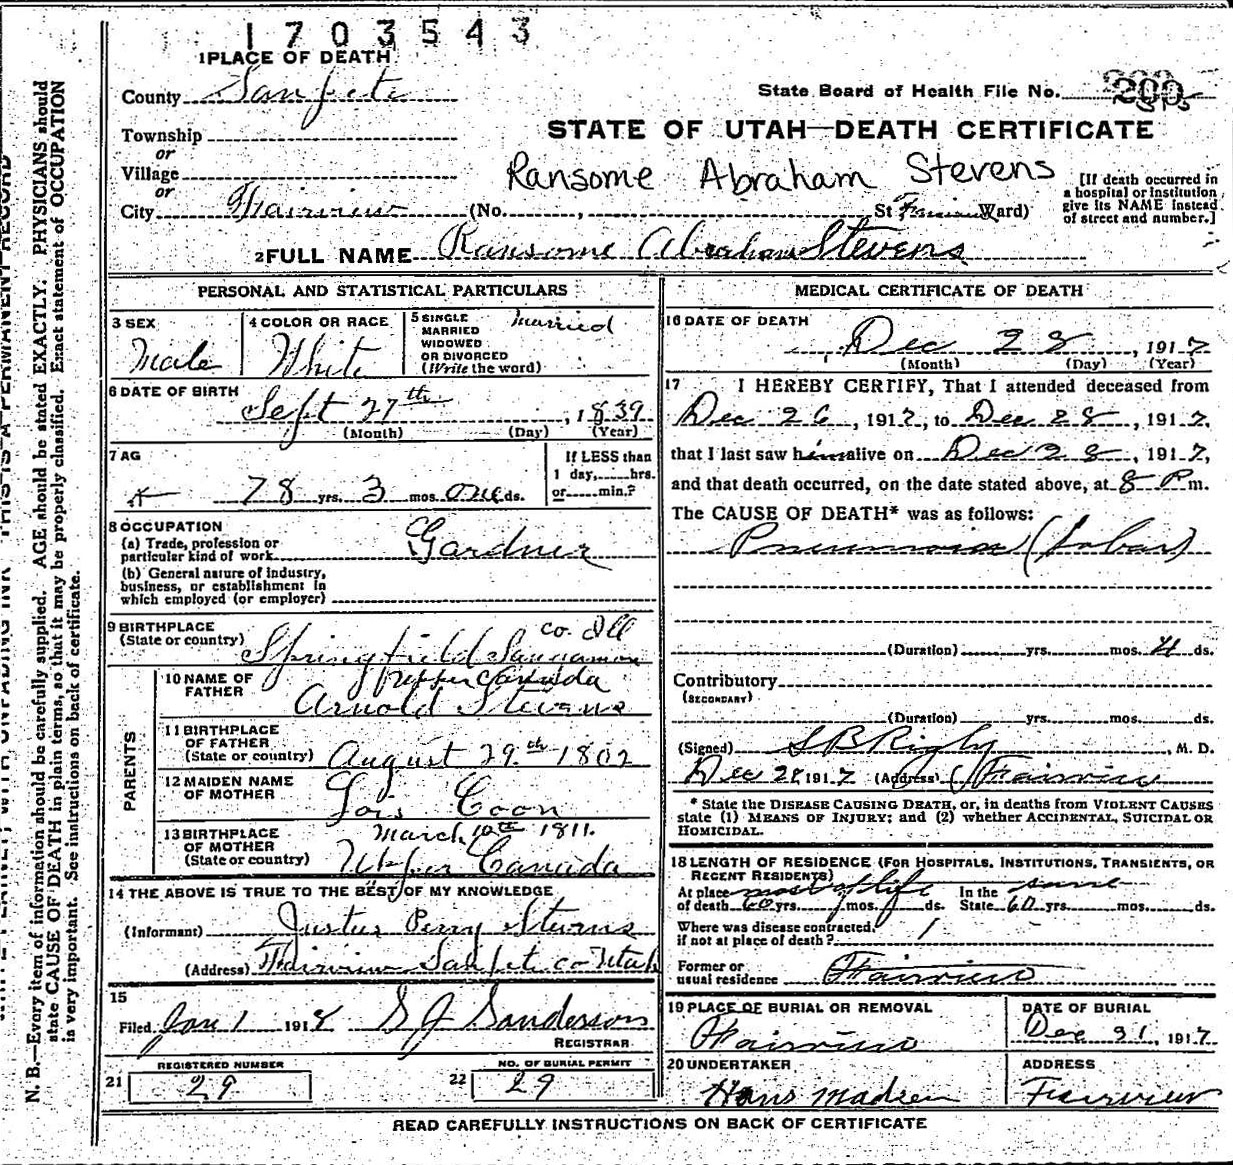 1703543
1 PLACE OF DEATH
County Sanpete
State Board of Health File No.
Township
STATE OF UTAH—DEATH CERTIFICATE
or
Village
Ransome Abraham Stevens
or
City Fairview (No. , St Fairview Ward)
[If death occurred in
a hospital or institution
give its NAME instead
of street and number.]
2 FULL NAME Ransome Abraham Stevens
PERSONAL AND STATISTICAL PARTICULARS
3 SEX
Male
4 COLOR OR RACE
White
5 SINGLE
MARRIED
WIDOWED
OR DIVORCED
(Write the word)
Married
6 DATE OF BIRTH
Sept 27th, 1839
(Month) (Day) (Year)
7 AG
78 yrs. 3 mos. one ds.
If LESS than
1 day, hrs.
or min.?
8 OCCUPATION
(a) Trade, profession or
particular kind of work Gardner
(b) General nature of industry,
business, or establishment in
which employed (or employer)
9 BIRTHPLACE
(State or country) Springfield Sangamon
co. Ill
PARENTS
10 NAME OF
FATHER
Upper Canada
Arnold Stevens
11 BIRTHPLACE
OF FATHER
(State or country) August 29th 1802
12 MAIDEN NAME
OF MOTHER
Lois Coon
13 BIRTHPLACE
OF MOTHER
(State or country)
March 10th 1811.
Upper Canada
14 THE ABOVE IS TRUE TO THE BEST OF MY KNOWLEDGE
(Informant) Justus Perry Stevens
(Address) Fairview Sanpete co Utah
15
Filed Jan 1 1918 S J Sanderson
REGISTRAR
REGISTERED NUMBER
21 29
NO. OF BURIAL PERMIT
22 29
MEDICAL CERTIFICATE OF DEATH
16 DATE OF DEATH
Dec 28, 1917
(Month) (Day) (Year)
17 I HEREBY CERTIFY, That I attended deceased from
Dec 26, 1917, to Dec 28, 1917,
that I last saw him alive on Dec 28, 1917,
and that death occurred, on the date stated above, at 8 P m.
The CAUSE OF DEATH* was as follows:
Pneumonia (Lobar)
(Duration) yrs. mos. 4 ds.
Contributory
(SECONDARY)
(Duration) yrs. mos. ds.
(Signed) S B Rigby, M. D.
Dec 28, 1917 (Address) Fairview
* State the DISEASE CAUSING DEATH, or, in deaths from VIOLENT CAUSES
state (1) MEANS OF INJURY; and (2) whether ACCIDENTAL, SUICIDAL OR
HOMICIDAL.
18 LENGTH OF RESIDENCE (FOR HOSPITALS, INSTITUTIONS, TRANSIENTS, OR
RECENT RESIDENTS)
At place most of life In the same
of death 60 yrs. mos. ds. State 60 yrs. mos. ds.
Where was disease contracted,
if not at place of death?
Former or
usual residence Fairview
19 PLACE OF BURIAL OR REMOVAL
Fairview
DATE OF BURIAL
Dec 31, 1917
20 UNDERTAKER
Hans Madsen
ADDRESS
Fairview
READ CAREFULLY INSTRUCTIONS ON BACK OF CERTIFICATE
N. B.—Every item of information should be carefully supplied. AGE should be stated EXACTLY. PHYSICIANS should
state CAUSE OF DEATH in plain terms, so that it may be properly classified. Exact statement of OCCUPATION
is very important. See instructions on back of certificate.